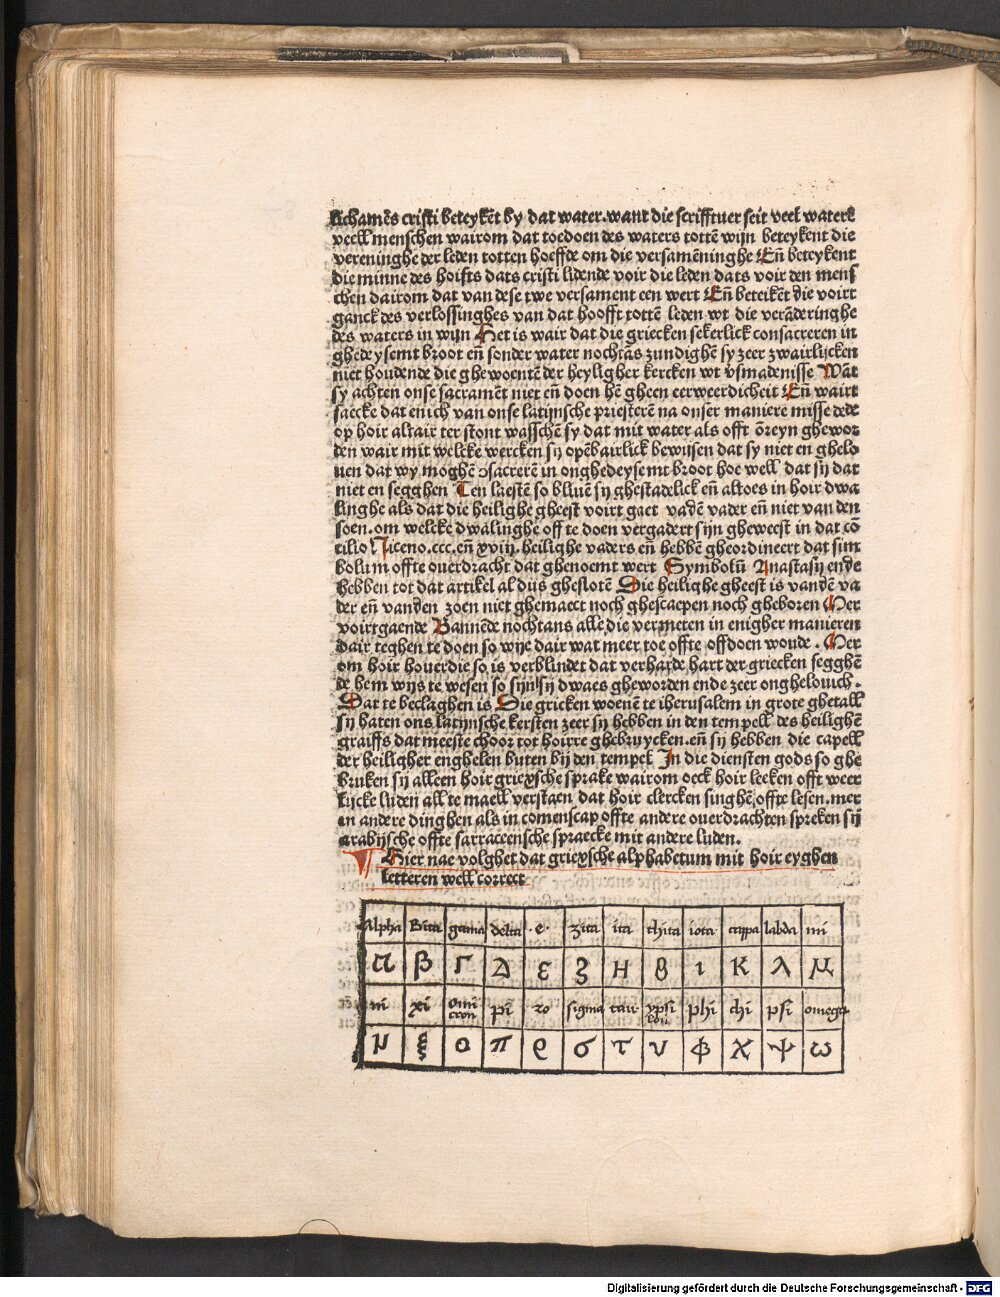 lichamēs cristi beteykēt by dat water. want die scrifftuer seit veel waters
veell menschen wairom dat toedoen des waters tottē wijn beteykent die
vereninghe der leden totten hoeffde om die versamēninghe Eñ beteykent
die minne des hoifts dats cristi lidende voir die leden dats voir den mens
chen dairom dat van dese twe versament een wert Eñ beteikēt die voirt
ganck des verlossinghes van dat hoofft tottē leden wt die verāderinghe
des waters in wijn Het is wair dat die griecken sekerlick consacreren in
ghedeysemt broot eñ sonder water nochtās zundighē sy zeer zwairlijcken
niet houdende die ghewoentē der heyligher kercken wt v̄smadenisse Wāt
sy achten onse sacramēt niet eñ doen hē gheen eerweerdicheit Eñ wairt
saecke dat enich van onse latijnsche priesterē na onser maniere misse dede
op hoir altair ter stont wasschē sy dat mit water als offt ōreyn ghewor
den wair mit welcke wercken sij opēbairlick bewijsen dat sy niet en ghelo
uen dat wy moghē ꝯsacrerē in onghedeysemt broot hoe well dat sij dat
niet en segghen Ten laestē so bliuē sij ghestadelick eñ altoes in hoir dwa
linghe als dat die heilighe gheest voirt gaet vadē vader eñ niet van den
soen. om welcke dwalinghe off te doen vergadert sijn gheweest in dat cō
cilio Niceno .ccc. eñ xviij. heilighe vaders eñ hebbē gheordineert dat sim
bolum offte ouerdracht dat ghenoemt wert Symbolū Anastasij ende
hebben tot dat artikel al dus gheslotē Die heilighe gheest is vandē va
der eñ vanden zoen niet ghemaect noch ghescaepen noch gheboren Mer
voirtgaende Bannēde nochtans alle die vermeten in enigher manieren
dair teghen te doen so wije dair wat meer toe offte offdoen woude. Mer
om hoir houerdie so is verblindet dat verharde hart der griecken segghē
de hem wijs te wesen so sijn sij dwaes gheworden ende zeer onghelouich.
Dat te beclaghen is Die gricken woenē te iherusalem in grote ghetall
sij haten ons latijnsche kersten zeer sij hebben in den tempell des heilighē
graiffs dat meeste choor tot hoirre ghebruycken. eñ sij hebben die capell
der heiligher enghelen buten bij den tempel In die diensten gods so ghe
bruken sij alleen hoir griexsche sprake wairom oeck hoir leeken offt weer
lijcke luden all te maell verstaen dat hoir clercken singhē offte lesen. mer
in andere dinghen als in comenscap offte andere ouerdrachten spreken sij
arabijsche offte sarraceensche spraecke mit andere luden.
Hier nae volghet dat griexsche alphabetum mit hoir eyghen
letteren well correct
Alpha Bita gama delta .e. zita ita thita iota cappa labda mi
α β Γ Δ ε ξ Η θ ι Κ λ μ
ni xi omicron pi ro sigma tau ypsilon phi chi psi omega
ν ξ ο π ρ σ τ υ φ χ ψ ω
Digitalisierung gefördert durch die Deutsche Forschungsgemeinschaft - DFG